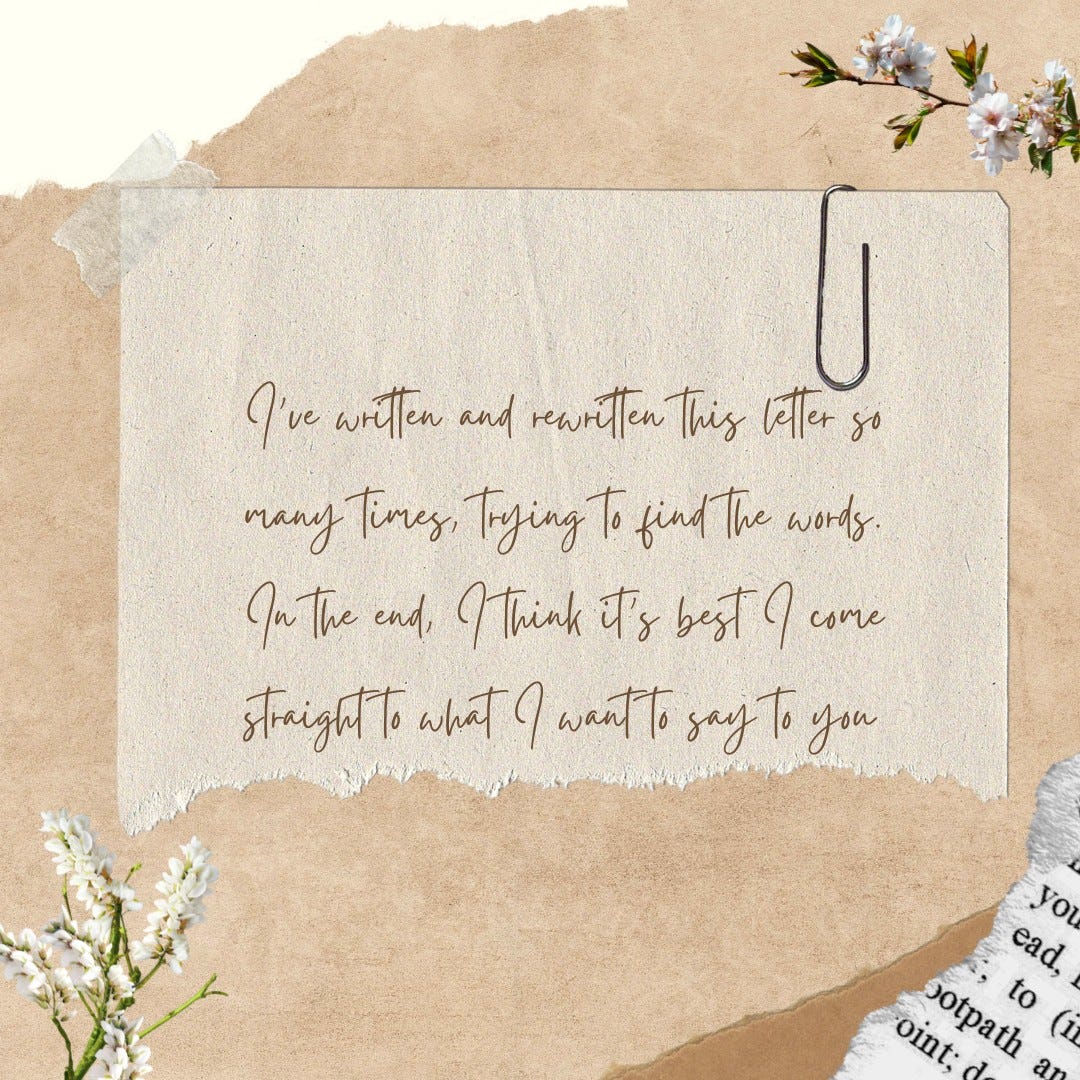 I've written and rewritten this letter so
many times, trying to find the words.
In the end, I think it's best I come
straight to what I want to say to you
ead,
to
ootpath
oint;